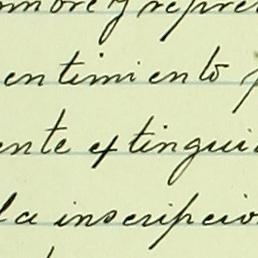 nombre y repre
entimiento p
ente extingui
la inscripcio